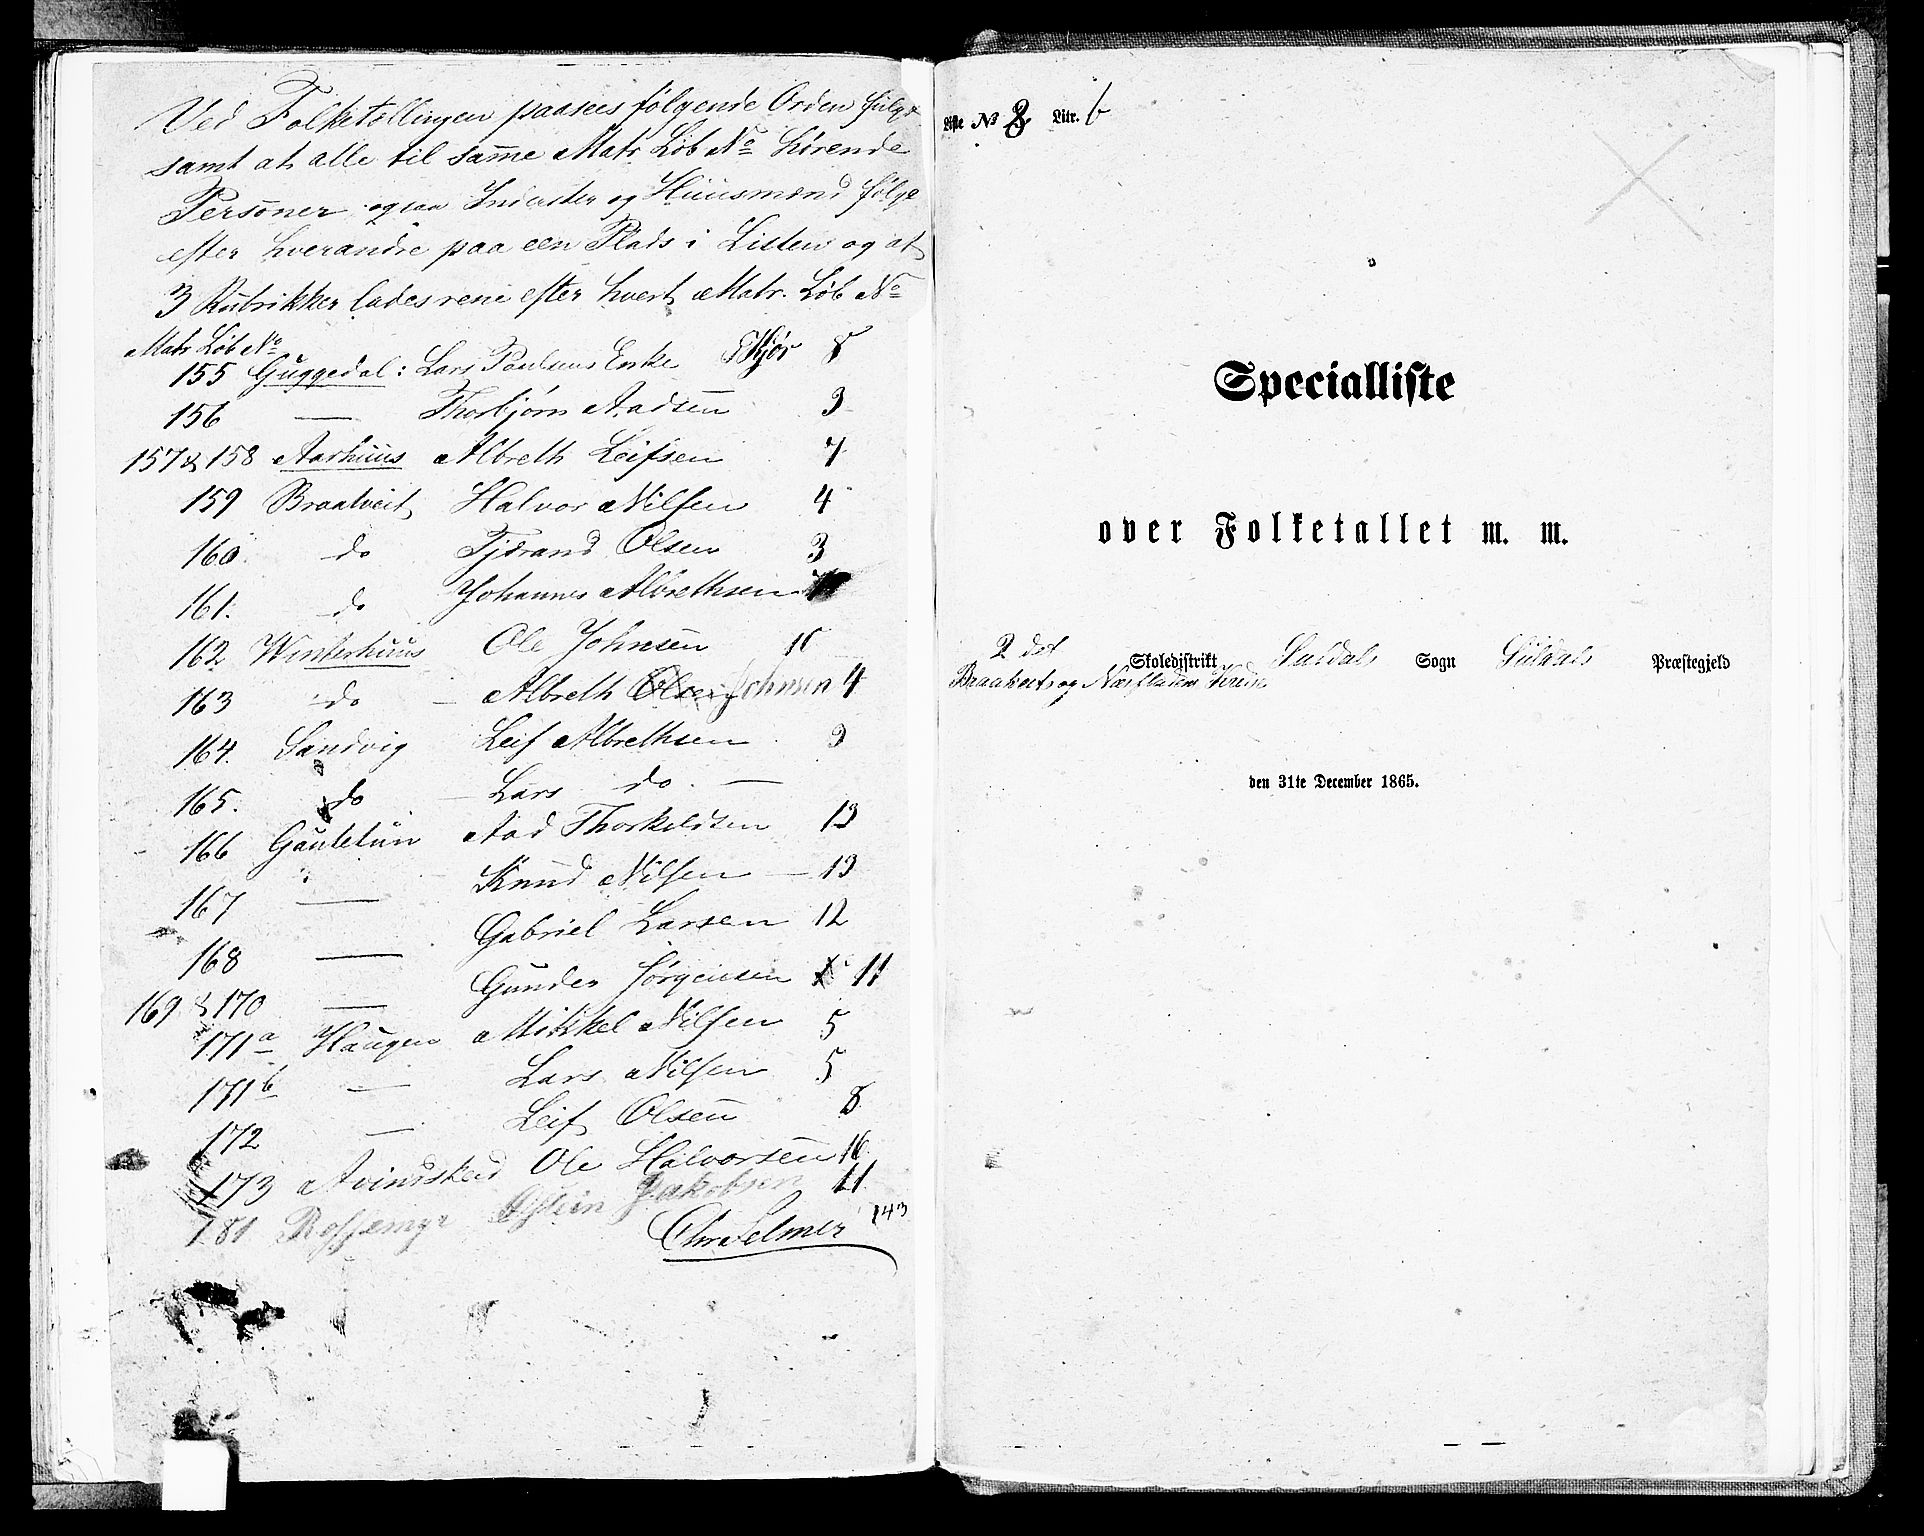 Ved Folketællingen paasees følgende Orden fulgt
samt at alle til samme Matr Løb No hørende
Personer ogsaa Inderster og Huusmænd følge
efter hverandre paa een Plads i Listen og at
3 Rubrikker lades rene efter hvert Matr. Løb No
Matr Løb No
155 Guggedal: Lars Paulsens Enke 8
156 — Thorbjørn Aadsen 3
157 & 158 Aarhuus Albreth Leifsen 7
159 Braatveit Halvor Nilsen 4
160. do Tjerand Olsen 3
161. do Johannes Albrethsen
162 Winterhuus Ole Johnsen
163 do Albreth Olsen Johnsen 4
164. Sandvig Leif Albrethsen 9
165. do Lars do —
166 Gautetun Aad Thorkeldsen 13
167 — Knud Nilsen — 13
168 — Gabriel Larsen 12
169 & 170 — Gunder Jørgensen 11
171a Haugen Mikkel Nilsen 5
171b — Lars Nilsen 5
172 — Leif Olsen 8
173 Ole Halvorsen 16
181 Østein Jakobsen 11
Chr Selmer 143
Liste No 8 Litr. b
Specialliste
over Folketallet m. m.
2det Skoledistrikt Suldals Sogn Suldals Præstegjeld
og Næsfladens Kreds
den 31te December 1865.